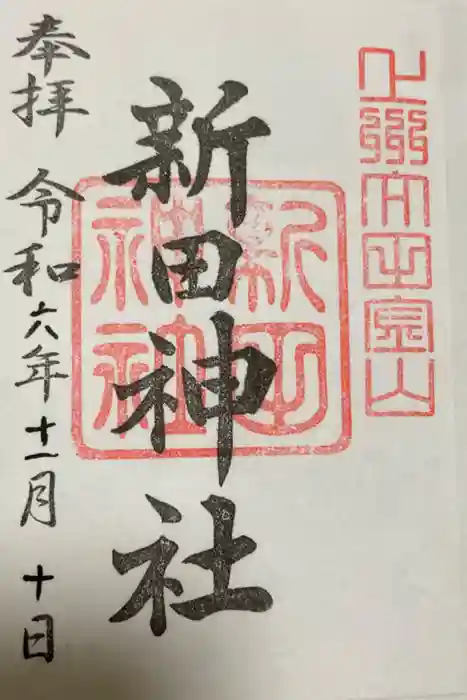 上州太田金山
新田神社
新田
神社
奉拝 令和六年十一月十日